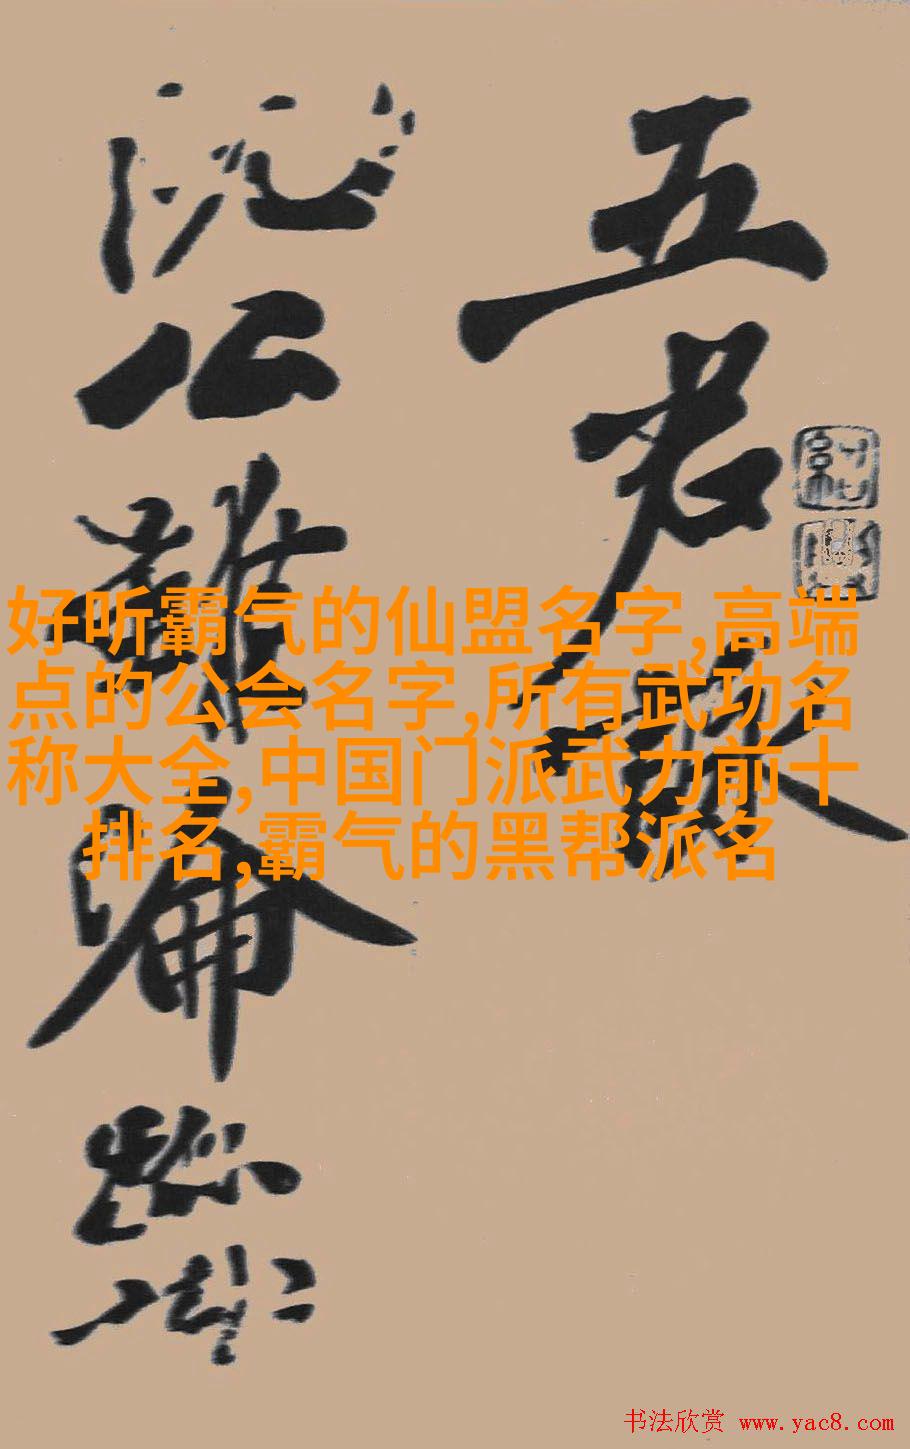 五君詠
阮公雖淪跡識
好听霸气的仙盟名字,高端
点的公会名字,所有武功名
称大全,中国门派武力前十
排名,霸气的黑帮派名
书法欣赏 www.yac8.com